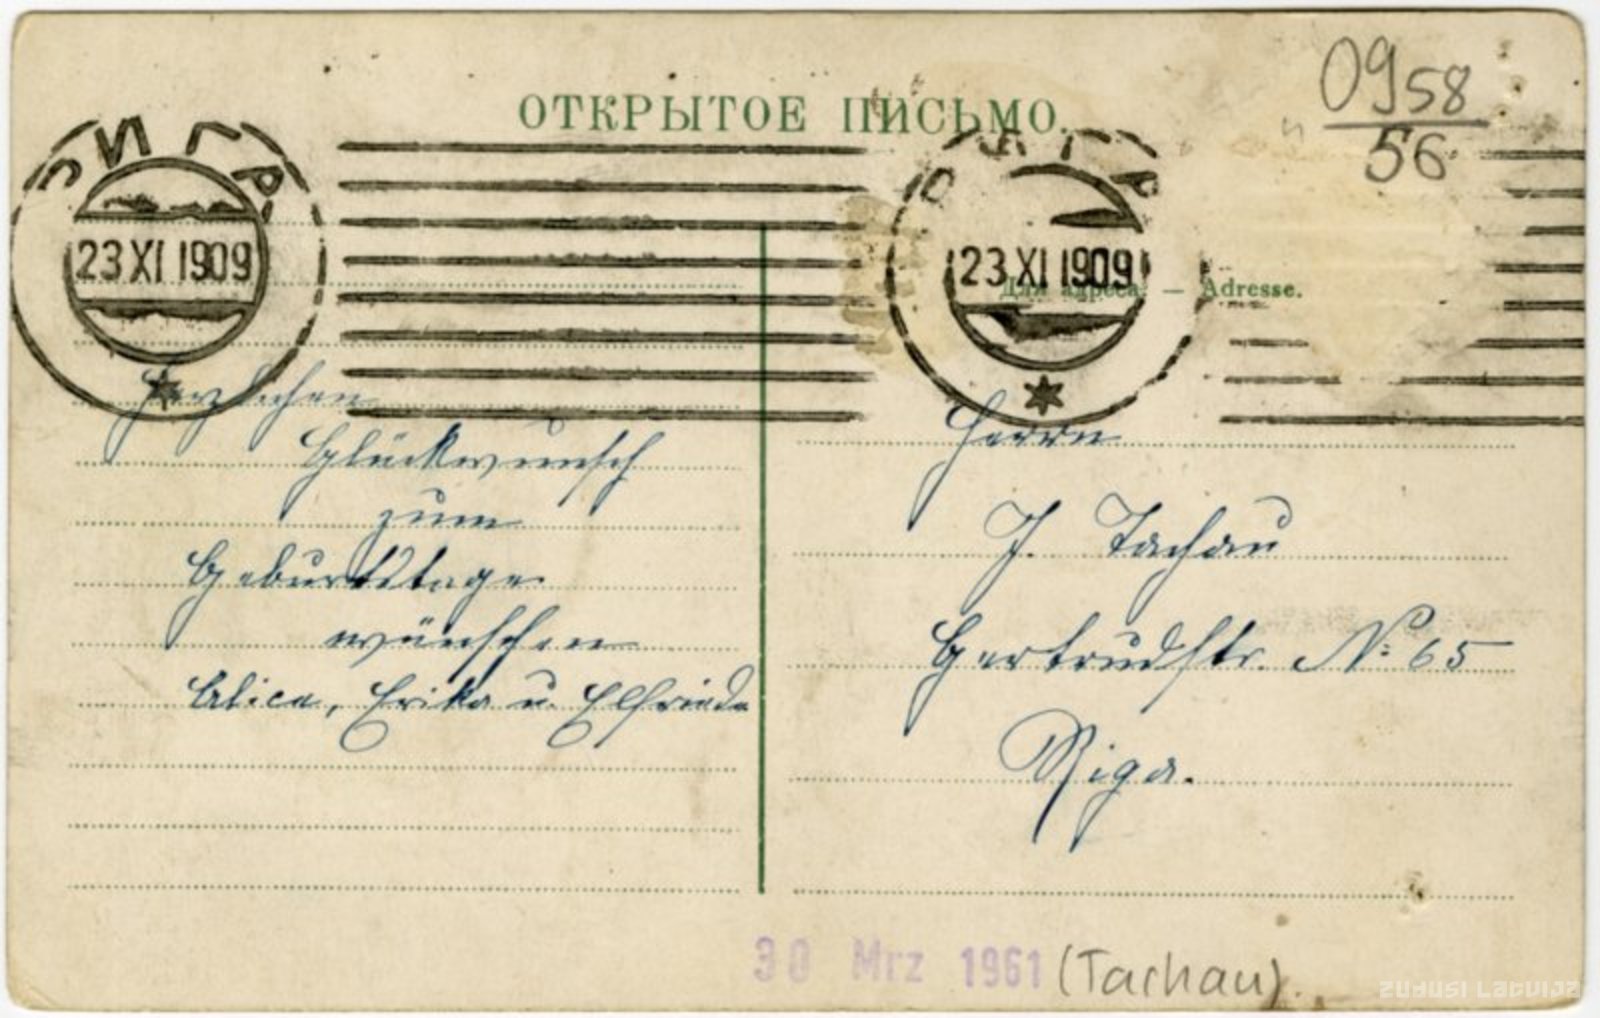 ОТКРЫТОЕ ПИСЬМО.
0958
56
РИГА
23 XI 1909
РИГА
23 XI 1909
Для адреса. — Adresse.
Herzlichen
Glückwunsch
zum
Geburtstage
wünschen
Alice, Erika u. Elfriede
Herrn
J. Tachau
Gertrudstr. No: 65
Riga.
30 Mrz 1961 (Tachau).
ZUDUSI LATVIJA